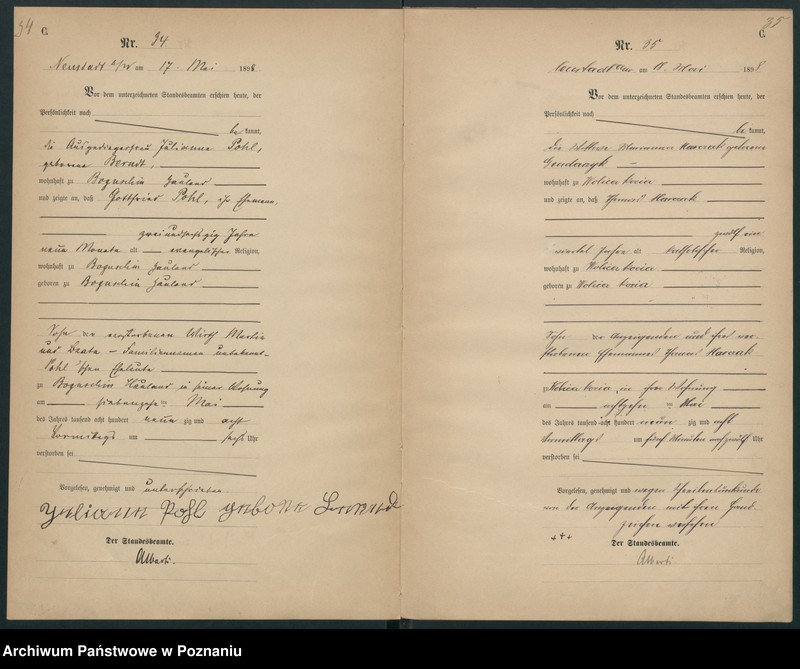 34
C.
Nr. 34
Neustadt a/W am 17. Mai 1898
Vor dem unterzeichneten Standesbeamten erschien heute, der
Persönlichkeit nach
be kannt,
die Ausgedingerfrau Julianna Pohl,
geborene Berndt,
wohnhaft zu Boguschin Hauland
und zeigte an, daß Gottfried Pohl, ihr Ehemann,
zweiundsechszig Jahre
neun Monate alt evangelischer Religion,
wohnhaft zu Boguschin Hauland
geboren zu Boguschin Hauland
Sohn der verstorbenen Wirth Martin
und Beate – Familiennamen unbekannt –
Pohl'schen Eheleute
zu Boguschin Hauland in seiner Wohnung
am siebenzehnten Mai
des Jahres tausend acht hundert neun zig und acht
Vormittags um sechs Uhr
verstorben sei
Vorgelesen, genehmigt und unterschrieben
Julianna Pohl geborne Berndt
Der Standesbeamte.
Alberti.
35
C.
Nr. 35
Neustadt a/W am 18. Mai 1898
Vor dem unterzeichneten Standesbeamten erschien heute, der
Persönlichkeit nach
be kannt,
die Wittwe Marianna geborene
wohnhaft zu
und zeigte an, daß
zwölf ein
viertel Jahre alt katholischer Religion,
wohnhaft zu
geboren zu
Sohn der Anzeigenden und ihres ver-
storbenen Ehemannes
zu in ihrer Wohnung
am achtzehnten Mai
des Jahres tausend acht hundert neun zig und acht
Vormittags um fünf Minuten auf zwölf Uhr
verstorben sei
Vorgelesen, genehmigt und wegen Schreibensunkunde
von der Anzeigenden mit ihrem Hand-
zeichen versehen
+++
Der Standesbeamte.
Alberti
Archiwum Państwowe w Poznaniu